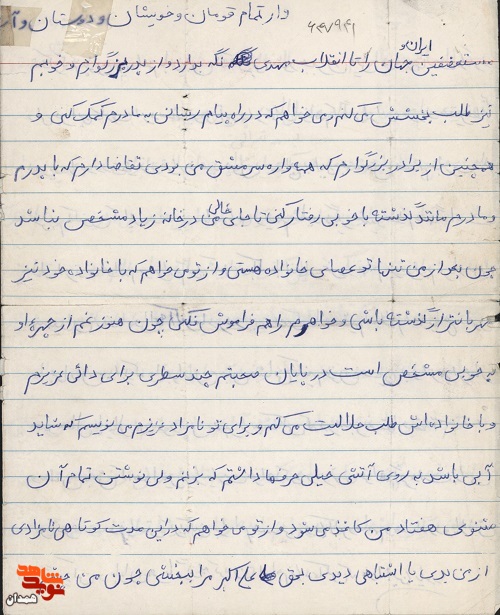 واز تمام قومان و خویشان و دوستان و آ
ایران و
مستضعفین جهان را تا انقلاب مهدی نگه بدارد و از پدر بزرگوارم و خوبم
نیز طلب بخشش می کنم و می خواهم که در راه پیام رسانی به مادرم کمک کنی و
همچنین از برادر بزرگوارم که همواره سرمشق من بودی تقاضا دارم که با پدرم
و مادرم مانند گذشته با خوبی رفتار کنی تا جای خالی من در خانه زیاد مشخص نباشد
چون بعد از من تنها تو عصای خانواده هستی و از تو می خواهم که با خانواده خود نیز
مهربانتر از گذشته باشی و خواهرم را هم فراموش نکنی چون هنوز غم از چهره او
به خوبی مشخص است در پایان صحبتم چند سطری برای دائی عزیزم
و با خانواده اش طلب حلالیت می کنم و برای تو نامزد عزیزم می نویسم که شاید
آبی باشد به روی آتش خیلی حرفها داشتم که بزنم ولی نوشتن تمام آن
مثنوی هفتاد من کاغذ می شود و از تو می خواهم که در این مدت کوتاهی نامزدی
از من بدی یا اشتباهی دیدی بحق علی اکبر مرا ببخشی چون من
نوید شاهد
همدان